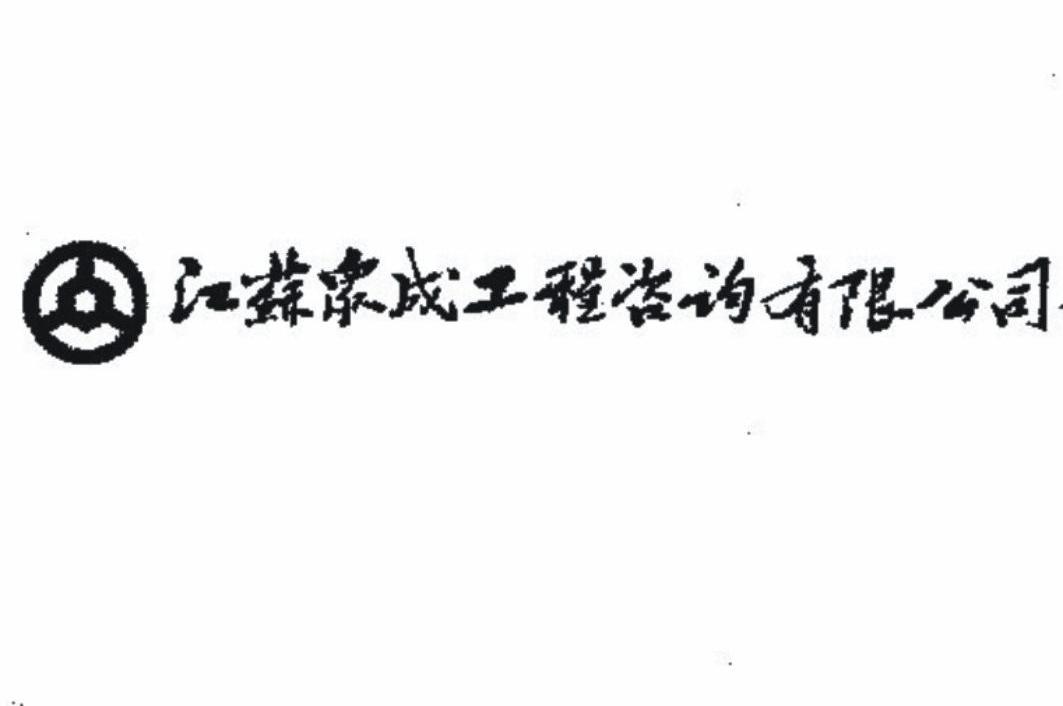 江蘇衆成工程咨询有限公司